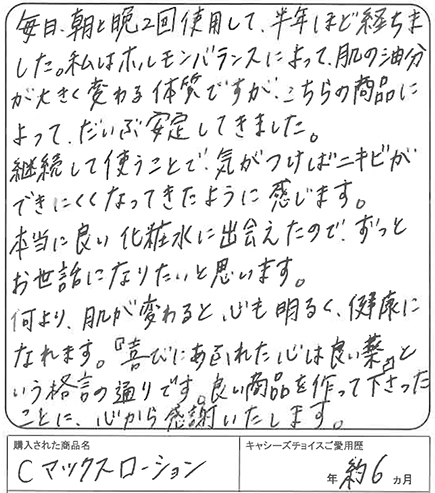 毎日、朝と晩2回使用して、半年ほど経ちま
した。私はホルモンバランスによって、肌の油分
が大きく変わる体質ですが、こちらの商品に
よって、だいぶ安定してきました。
継続して使うことで、気がつけばニキビが
できにくくなってきたように感じます。
本当に良い化粧水に出会えたので、ずっと
お世話になりたいと思います。
何より、肌が変わると心も明るく、健康に
なれます。『喜びにあふれた心は良い薬』と
いう格言の通りです。良い商品を作って下さった
ことに、心から感謝いたします。
購入された商品名
Cマックスローション
キャシーズチョイスご愛用歴
年 約6 ヵ月